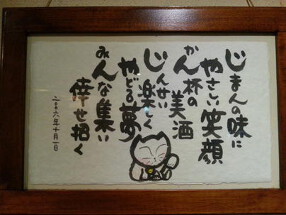 じまんの味に
やさしい笑顔
かん杯の
美酒
じんせい
楽しく
やどる夢
みんな集い
倖せ招く
二〇〇六年十月一日